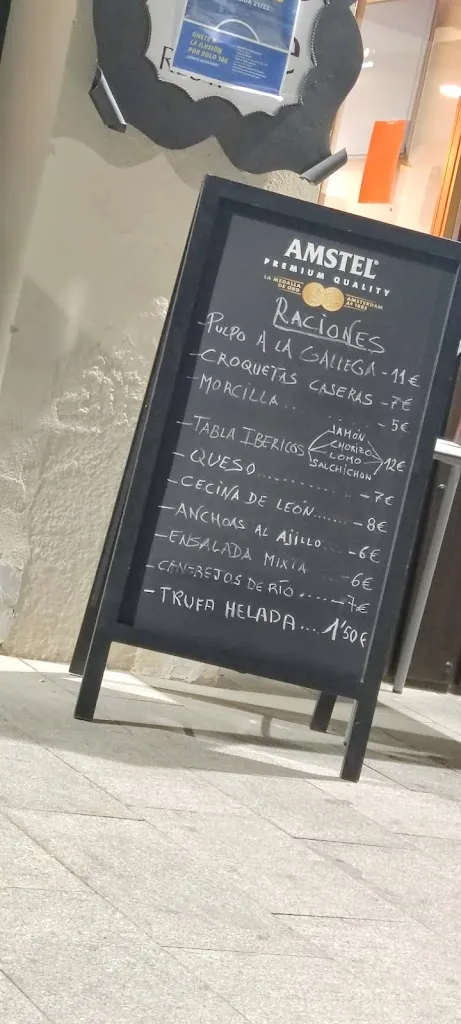 21/22
ÚNETE A
LA ILUSIÓN
POR SOLO
AMSTEL
PREMIUM QUALITY
LA MEDALLA
DE ORO
AMSTERDAM
RACIONES
-PULPO A LA GALLEGA-11€
-CROQUETAS CASERAS-7€
-MORCILLA...-5€
-TABLA IBERICOS
JAMÓN
CHORIZO
LOMO
SALCHICHON
12€
-QUESO........-7€
-CECINA DE LEÓN......-8€
-ANCHOAS AL AJILLO...-6€
-ENSALADA MIXTA-6€
-CANGREJOS DE RÍO.....-7€
-TRUFA HELADA....1'50€